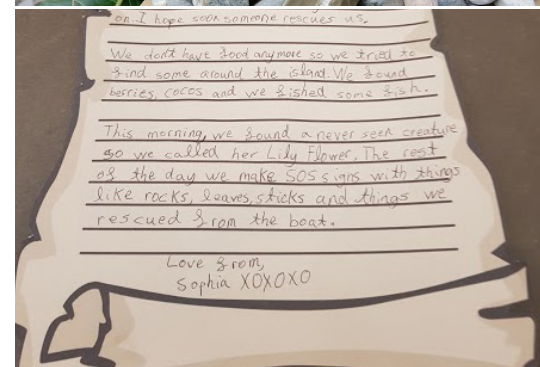 on. I hope soon someone rescues us.
We don't have food anymore so we tried to
find some around the island. We found
berries, cocos and we fished some fish.
This morning, we found a never seen creature
so we called her Lily Flower. The rest
of the day we make SOS signs with things
like rocks, leaves, sticks and things we
rescued from the boat.
Love from,
Sophia XOXOXO